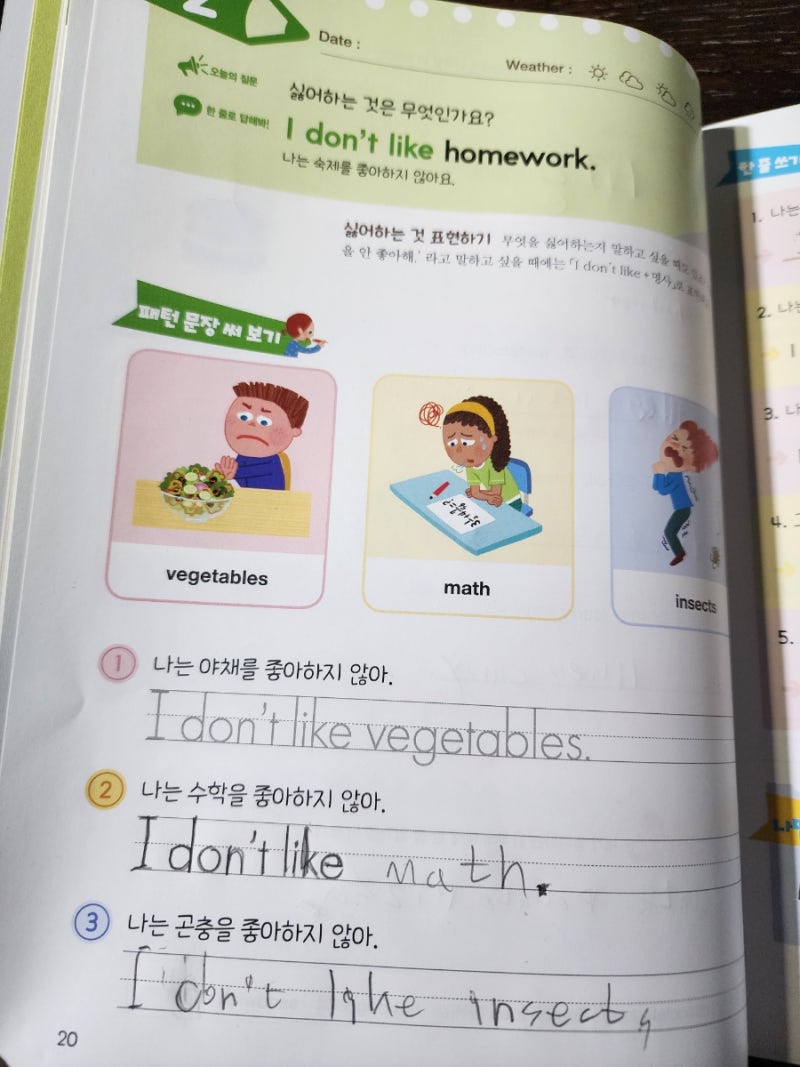 2
Date :
Weather :
오늘의 질문
싫어하는 것은 무엇인가요?
한 줄로 답해봐!
I don't like homework.
나는 숙제를 좋아하지 않아요.
싫어하는 것 표현하기 무엇을 싫어하는지 말하고 싶을 때
을 안 좋아해.' 라고 말하고 싶을 때에는 「I don't like + 명사」로
패턴 문장 써 보기
vegetables
math
insects
1 나는 야채를 좋아하지 않아.
I don't like vegetables.
2 나는 수학을 좋아하지 않아.
I don't like math.
3 나는 곤충을 좋아하지 않아.
I don't like insects
20
한 줄 쓰기
1. 나는
2. 나는
I
3. 나
4. 그
5.